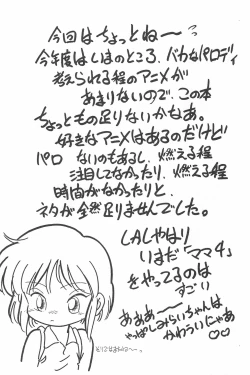 今回はちょっとね～っ
今年度はいまのところ、バカなパロディ
考えられる程のアニメが
あまりないので、この本
ちょっともの足りないかなあ。
好きなアニメはあるのだけど
パロ ないのもあるし、燃える程
注目してなかったり、燃える程
時間がなかったりと、
ネタが全然足りませんでした。
しかしやはり
いまだ「ママ4」
をやってるのは
すごい
あああ～～
やっぱしみらいちゃんは
かわういにゃあ